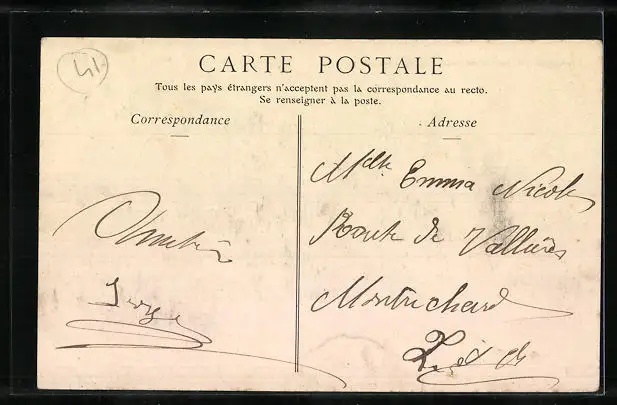 41
CARTE POSTALE
Tous les pays étrangers n'acceptent pas la correspondance au recto.
Se renseigner à la poste.
Correspondance
Adresse
Mlle Emma Nicolas
Route de Vallières
Montrichard